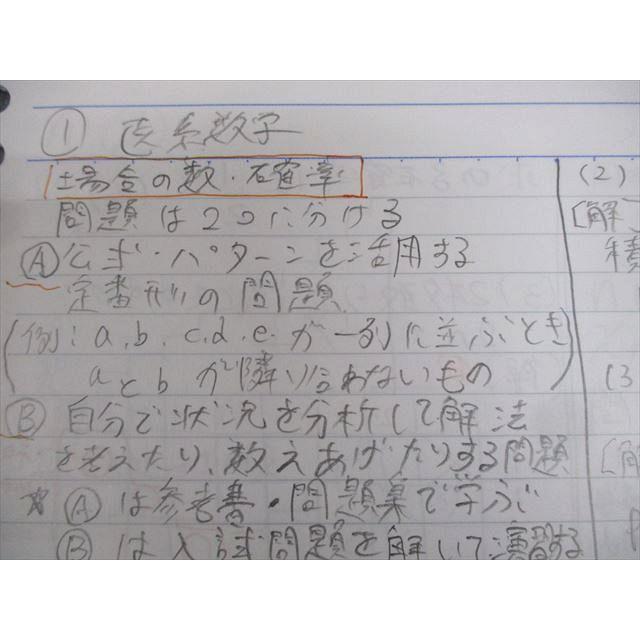 ① 医系数学
場合の数・確率
問題は2つに分ける
Ⓐ公式・パターンを活用する
定番形の問題
(例:a,b,c,d,e.が一列に並ぶとき
aとbが隣り合わないもの)
Ⓑ 自分で状況を分析して解法
を考えたり、数えあげたりする問題
☆Ⓐは参考書・問題集で学ぶ
Ⓑは入試問題を解いて演習する
(2)
[解
積
(3
[解